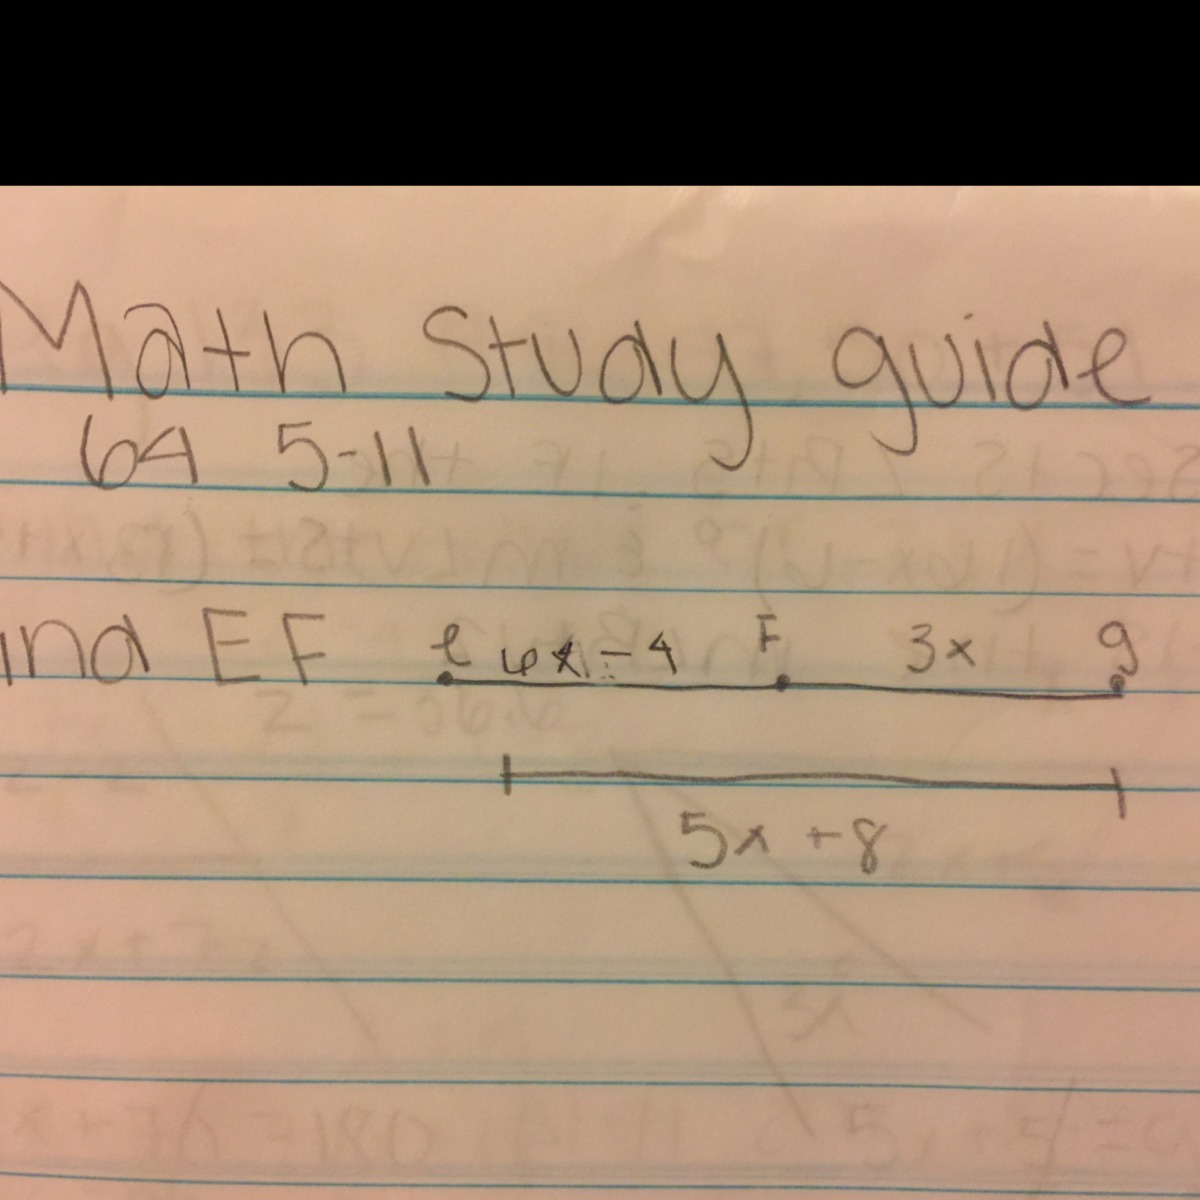 Math Study guide
64 5-11
ind EF e 6x-4 F 3x g
5x +8